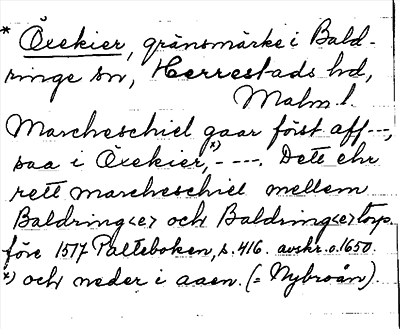 * Öxekier, gränsmärke i Bald-
ringe sn, Herrestads hd,
Malm. l.
Marcheschiel gaar först aff ---,
saa i Öxekier,*) ----. Dett ehr
rett marcheschiel mellem
Baldring<e> och Baldring<e>torp.
före 1517 Palteboken, s. 416. avskr. o. 1650.
*) och neder i aaen. (= Nybroån).